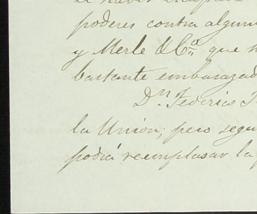 poderes contra algun
y Merle & Cª que n
bastante embarazad
Dn Federico
la Union; pero segu
podrá reemplasar la